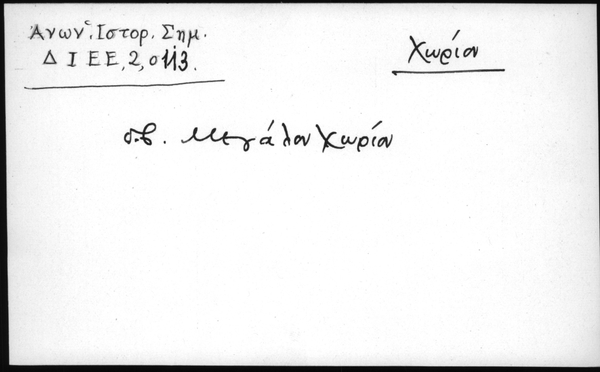 Ἀνων. Ἱστορ. Σημ.
Δ Ι Ε Ε, 2, 0113.
Χωρίον
σ.β. Μεγάλον Χωρίον